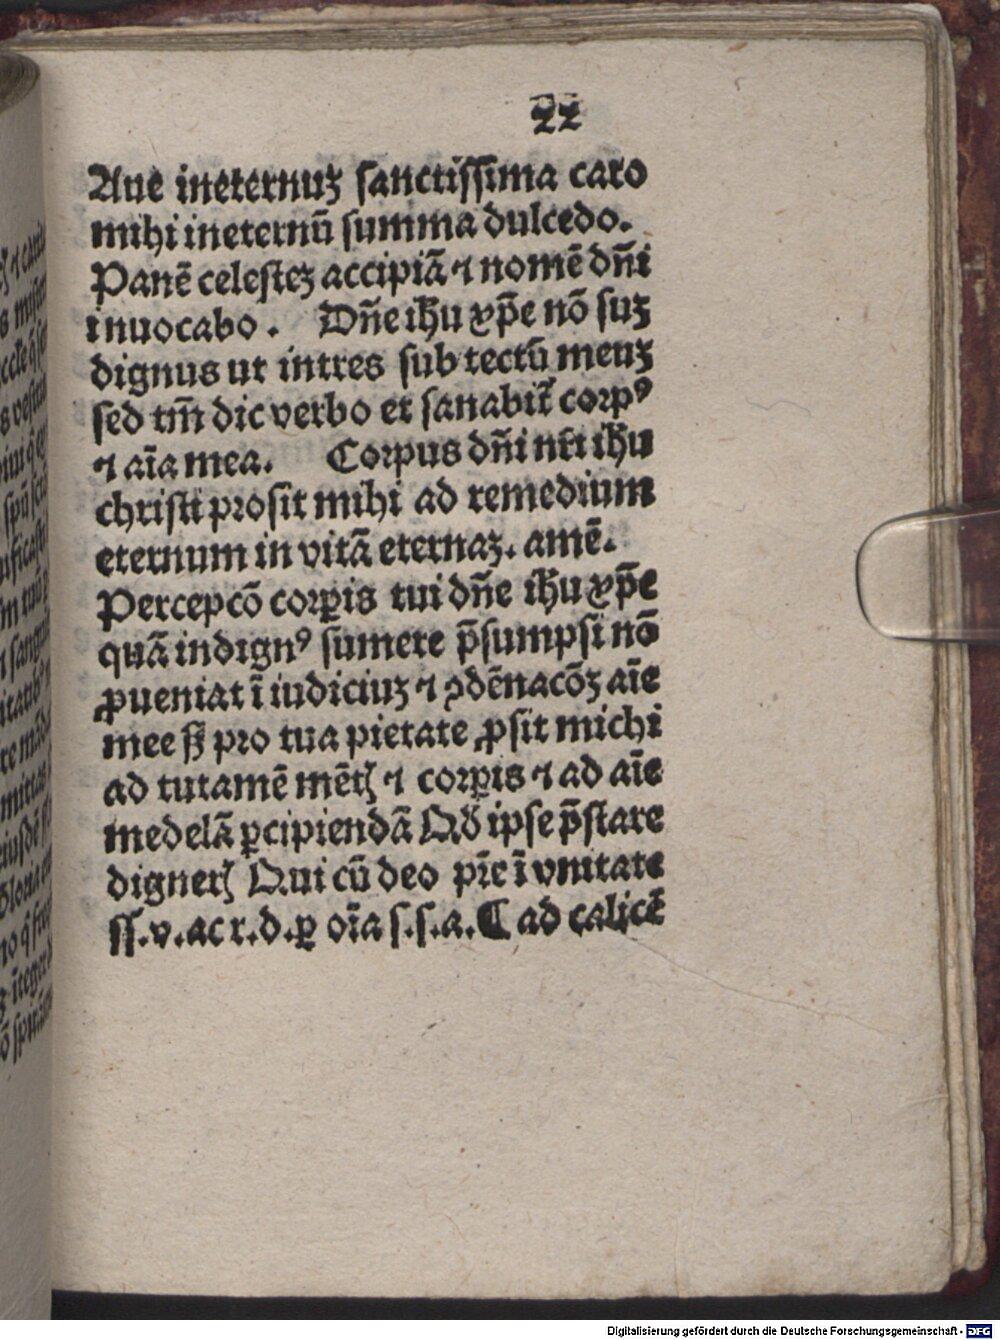 22
Aue ineternuʒ ſanctiſſima caro
mihi ineternū ſumma dulcedo.
Panē celeſteʒ accipiā ⁊ nomē dn̄i
inuocabo. Dn̄e ih̄u xp̄e nō ſuʒ
dignus ut intres ſub tectū meuʒ
ſed tm̄ dic verbo et ſanabit᷑ corpꝰ
⁊ aīa mea. Corpus dn̄i nr̄i ih̄u
chriſti proſit mihi ad remedium
eternum in vitā eternaʒ. amē.
Percepcō corꝑis tui dn̄e ih̄u xp̄e
quā indignꝰ ſumere p̄ſumpſi nō
ꝓueniat ī iudiciuʒ ⁊ ꝯdēnacōʒ aīe
mee ſꝫ pro tua pietate ꝓſit michi
ad tutamē mētꝭ ⁊ corꝑis ⁊ ad aīe
medelā ꝑcipiendā Qd̄ ipſe p̄ſtare
dignerꝭ Qui cū deo pr̄e ī vnitate
ſſ.v.ac r.d.ꝑ oīa ſ.ſ.a. ¶ ad calicē
Digitalisierung gefördert durch die Deutsche Forschungsgemeinschaft - DFG